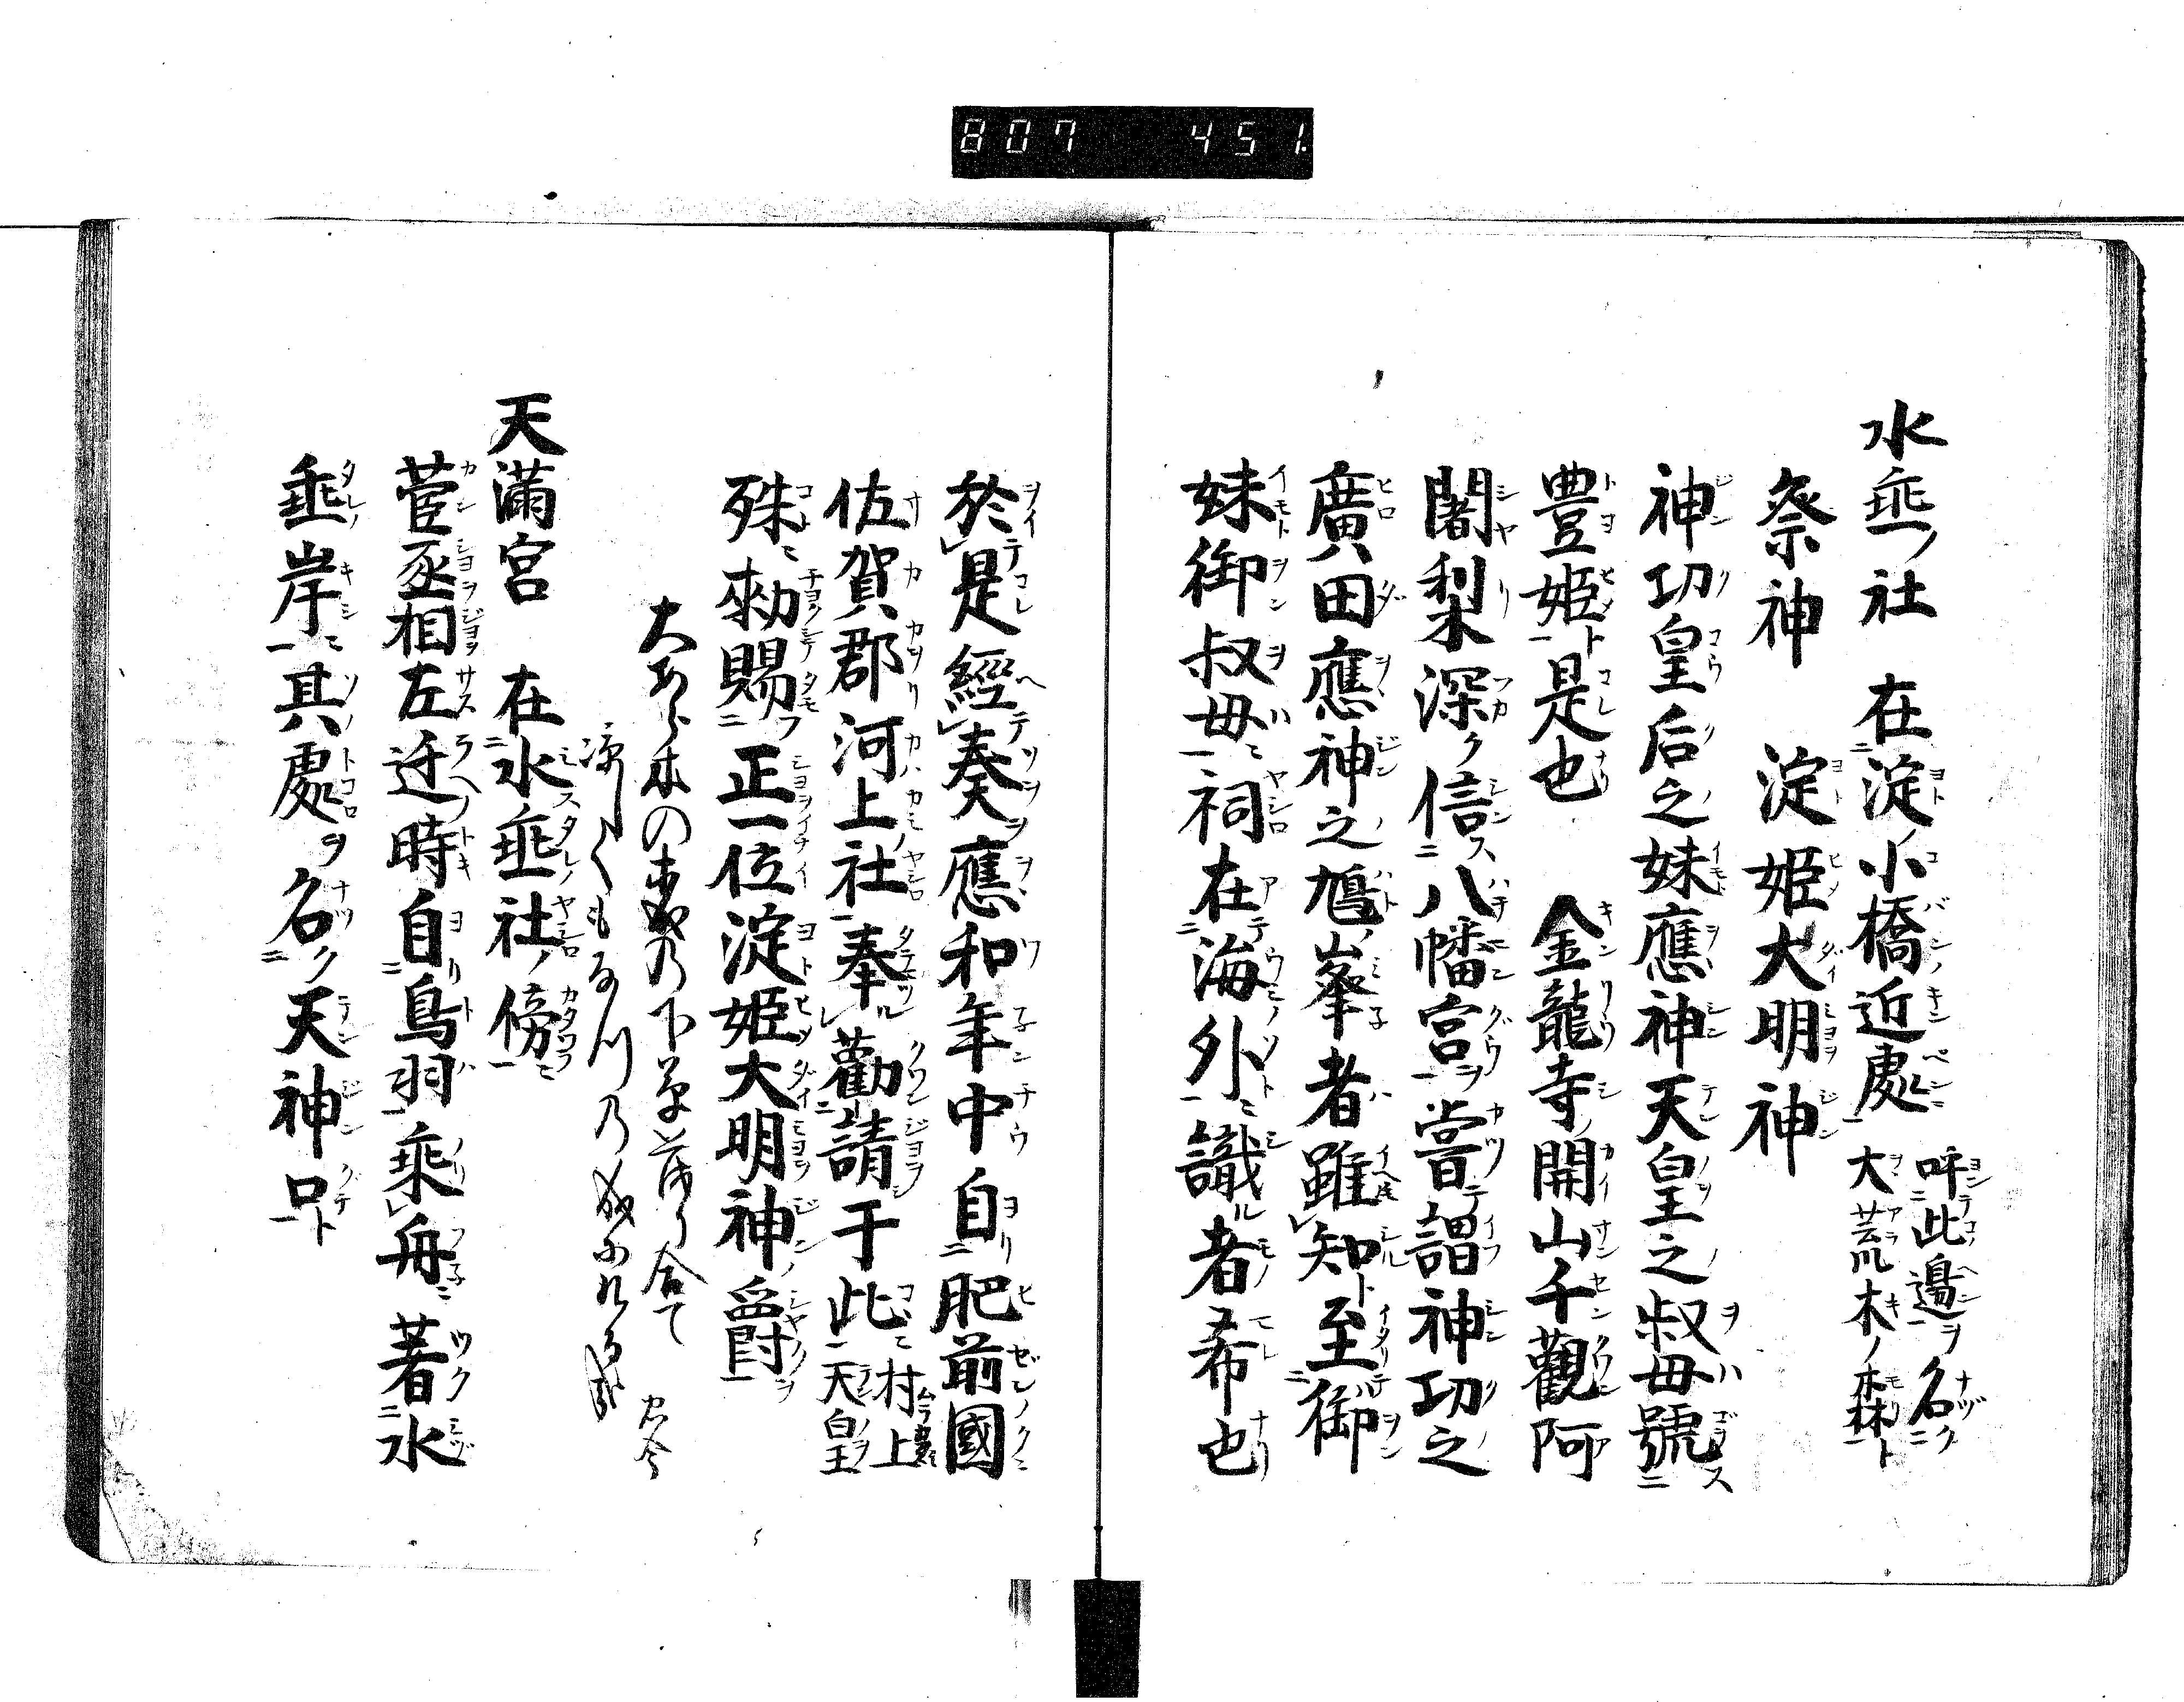 807 451.
水埀ノ社 在淀ノ小橋近處 呼此邉ヲ名ク
大荒木ノ森ト
祭神 淀姫大明神
神功皇后之妹應神天皇之叔母號ス
豊姫ト是也 金龍寺ノ開山千觀阿
闍梨深ク信ス八幡宮ヲ嘗テ謂神功之
廣田應神之鳩ノ峯者雖知ト至御
妹御叔母ニ祠在海外ニ識ル者希也
於是經奏ヲ應和年中自肥前國
佐賀郡河上社奉ル勸請于此ニ 村上
天皇
殊ニ勅賜フ正一位淀姫大明神ノ爵ヲ
大あらきの森の下草茂り合て
天滿宮 在水埀社ノ傍ニ
菅丞相左迁ノ時自鳥羽乘舟ニ著水
埀岸ニ其處ヲ名ク天神口ト